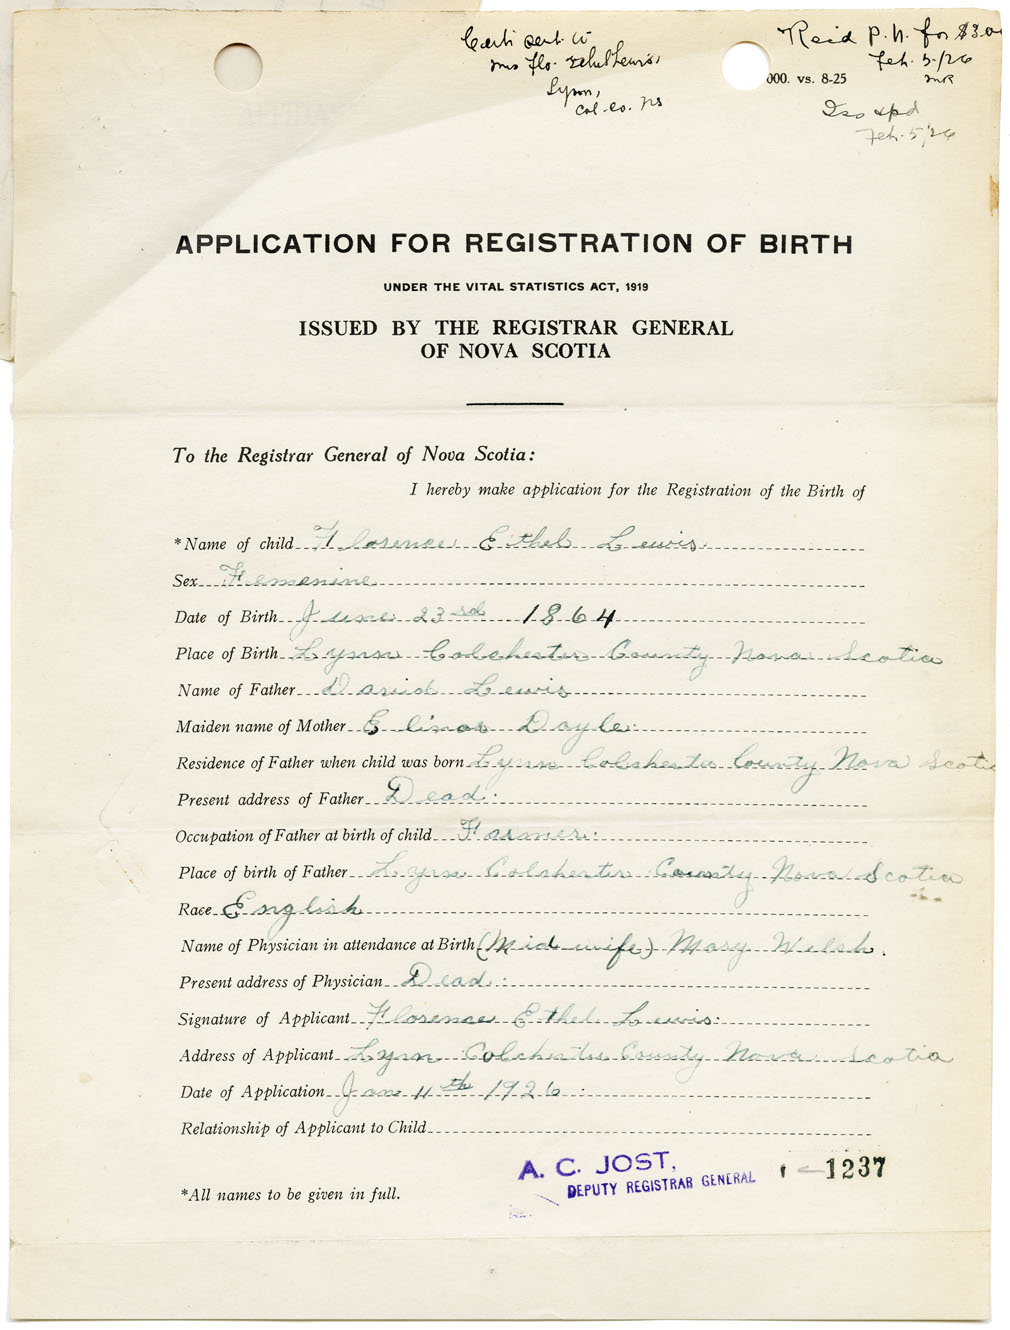 Certi sent to
Mrs Flo. Ethel Lewis,
Lynn,
Col. Co. NS
Rec'd P.N. for $3.00
Feb. 5/26
MR
000. vs. 8-25
Iss &
Feb. 5/26
APPLICATION FOR REGISTRATION OF BIRTH
UNDER THE VITAL STATISTICS ACT, 1919
ISSUED BY THE REGISTRAR GENERAL
OF NOVA SCOTIA
To the Registrar General of Nova Scotia:
I hereby make application for the Registration of the Birth of
*Name of child Florence Ethel Lewis.
Sex Femenine
Date of Birth June 23rd 1864
Place of Birth Lynn Colchester County Nova Scotia
Name of Father David Lewis
Maiden name of Mother Elinor Doyle.
Residence of Father when child was born Lynn Colchester County Nova Scotia
Present address of Father Dead.
Occupation of Father at birth of child Farmer.
Place of birth of Father Lynn Colchester County Nova Scotia
Race English
Name of Physician in attendance at Birth (Mid wife) Mary Welsh.
Present address of Physician Dead.
Signature of Applicant Florence Ethel Lewis.
Address of Applicant Lynn Colchester County Nova Scotia
Date of Application Jan 11th 1926.
Relationship of Applicant to Child
A. C. JOST,
DEPUTY REGISTRAR GENERAL
1237
*All names to be given in full.